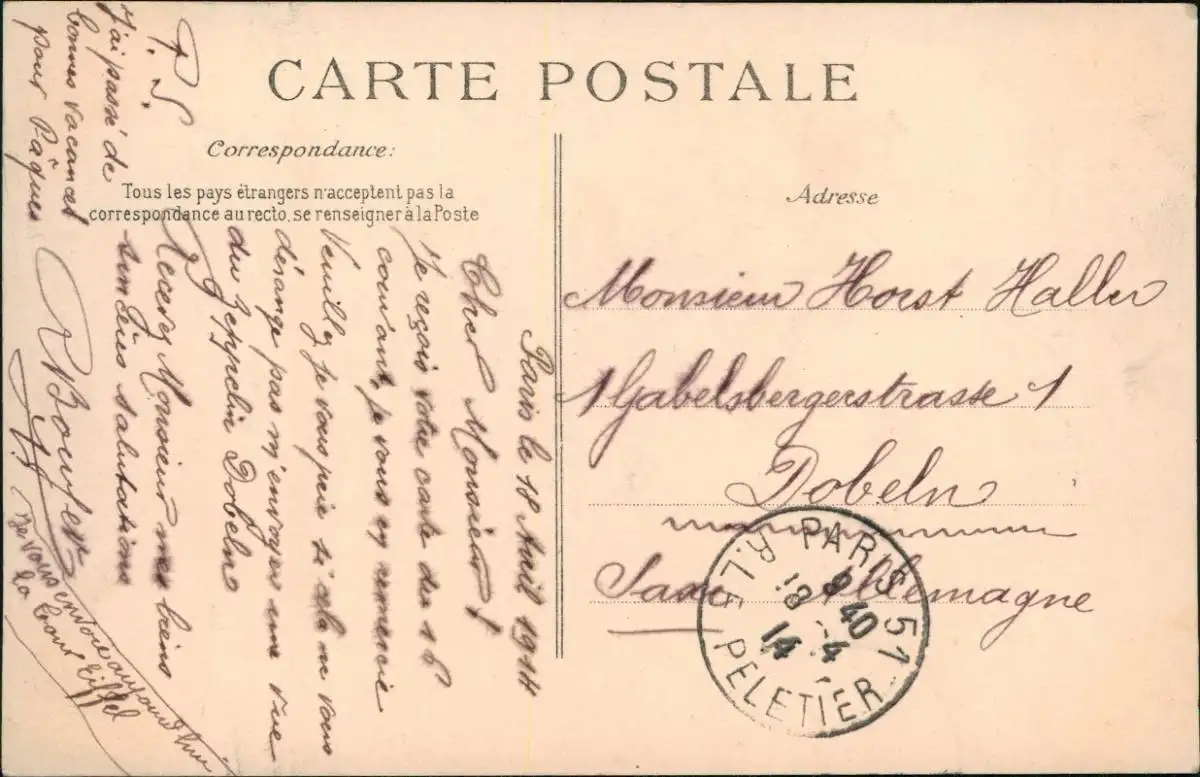 CARTE POSTALE
Correspondance:
Tous les pays étrangers n'acceptent pas la
correspondance au recto, se renseigner à la Poste
Paris le 18 Avril 1914
Cher Monsieur
Je reçois votre carte du 16
courant, je vous en remercie
Veuillez je vous prie si cela ne vous
dérange pas m'envoyer une vue
du Zeppelin Dobeln
Recevez Monsieur mes biens
sincères salutations
P.S.
J'ai passé de
bonnes vacances
pour Pâques
Je vous envoie aujourd'hui
la tour Eiffel
Adresse
Monsieur Horst Haller
1 Gabelsbergerstrasse 1
Dobeln
Saxe Allemagne
PARIS 51
R. LE PELETIER
18 -4
14